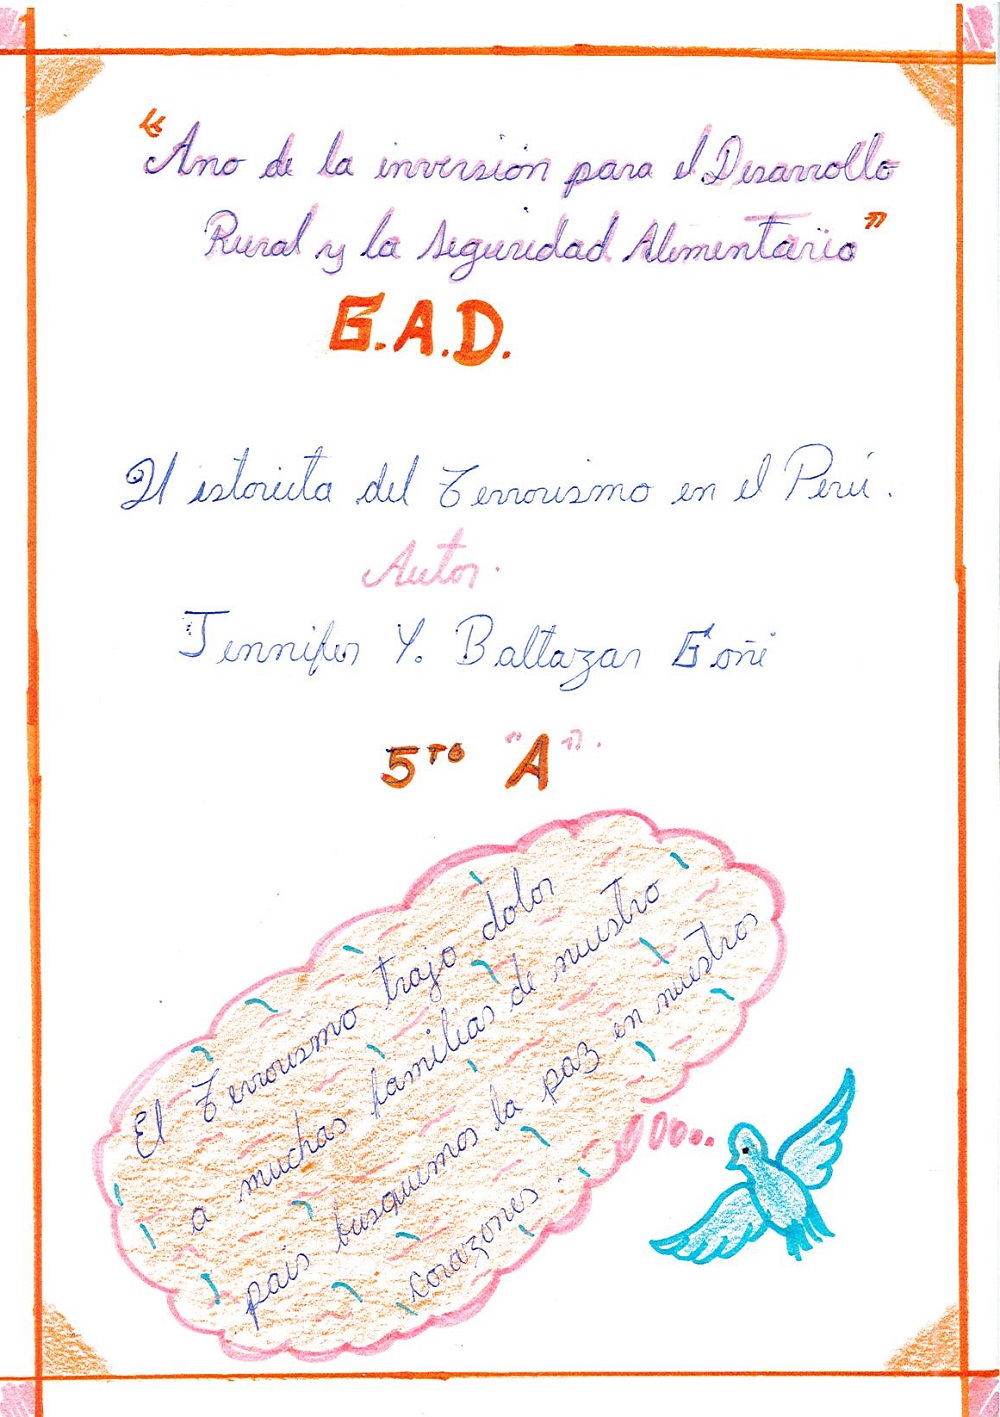 "Ano de la inversión para el Desarrollo
Rural y la seguridad Alimentario"
G.A.D.
Historieta del Terrorismo en el Perú.
Autor.
Jennifer Y. Baltazar Goñi
5TO "A".
El Terrorismo trajo dolor
a muchas familias de nuestro
país busquemos la paz en nuestros
corazones.